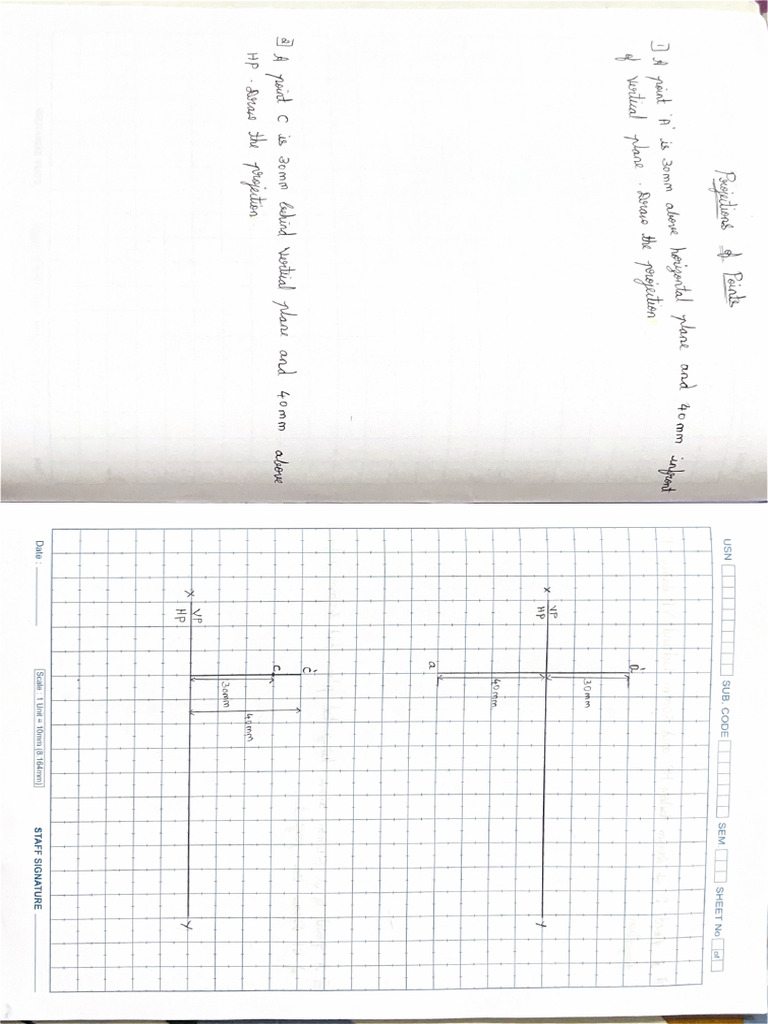 Projections of Points
1 A point 'A' is 30mm above horizontal plane and 40mm infront
of vertical plane. Draw the projection
2 A point C is 30mm behind vertical plane and 40mm above
HP. Draw the projection.
USN SUB. CODE SEM SHEET No of
a'
30mm
X VP Y
HP
40mm
a
c'
c
40mm
30mm
X VP Y
HP
Date : Scale : 1 Unit = 10mm (8.164mm) STAFF SIGNATURE